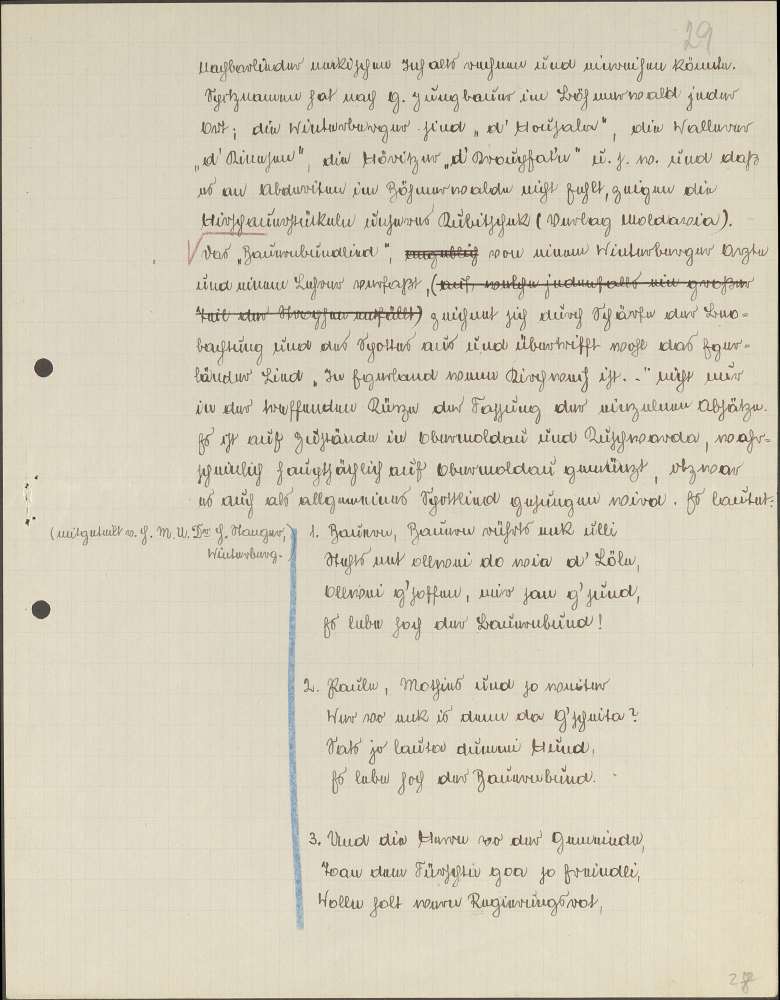 29
Nachbarländer neckischen Inhalts rechnen und einreihen könnte.
Spitznamen hat nach G. Jungbauer im Böhmerwald jeder
Ort; die Winterberger sind „d' Housala", die Wallerer
die Höritzer u. s. w. und daß
es an Abderiten im Böhmerwalde nicht fehlt, zeigen die
Hirschauerstückeln unseres Rubitschek (Verlag Moldavia).
Das „Bauernbundlied", angeblich von einem Winterberger Arzte
und einem Lehrer verfaßt, (auf welche jedenfalls ein großer
Teil der Strophen entfällt) zeichnet sich durch Schärfe der Beo-
bachtung und des Spottes aus und übertrifft wohl das Eger-
länder Lied „In Egerland wenn Kirchweih ist. -" nicht nur
in der treffenden Kürze der Fassung der einzelnen Absätze.
Es ist auf Zustände in Obermoldau und Kuschwarda, wahr-
scheinlich hauptsächlich auf Obermoldau gemünzt, obzwar
es auch als allgemeines Spottlied gesungen wird. Es lautet:
(mitgeteilt v. H. M. U. Dr H.
Winterberg.
1. Bauern, Bauern rührts enk ulli
Stehts net ollwei do wia d' Löln,
Ollwei g'soffen, mir san g'sund,
Es lebe hoch der Bauernbund!
2. Paule, Mathies und so weiter
Wer vo enk is denn da G'scheita?
Sats jo lauta dummi Hund,
Es lebe hoch der Bauernbund.
3. Und die Herrn vo der Gemeinde,
Toan dem Fürschtn goa so freindli,
Wolln holt wern Regierungsrot,
28